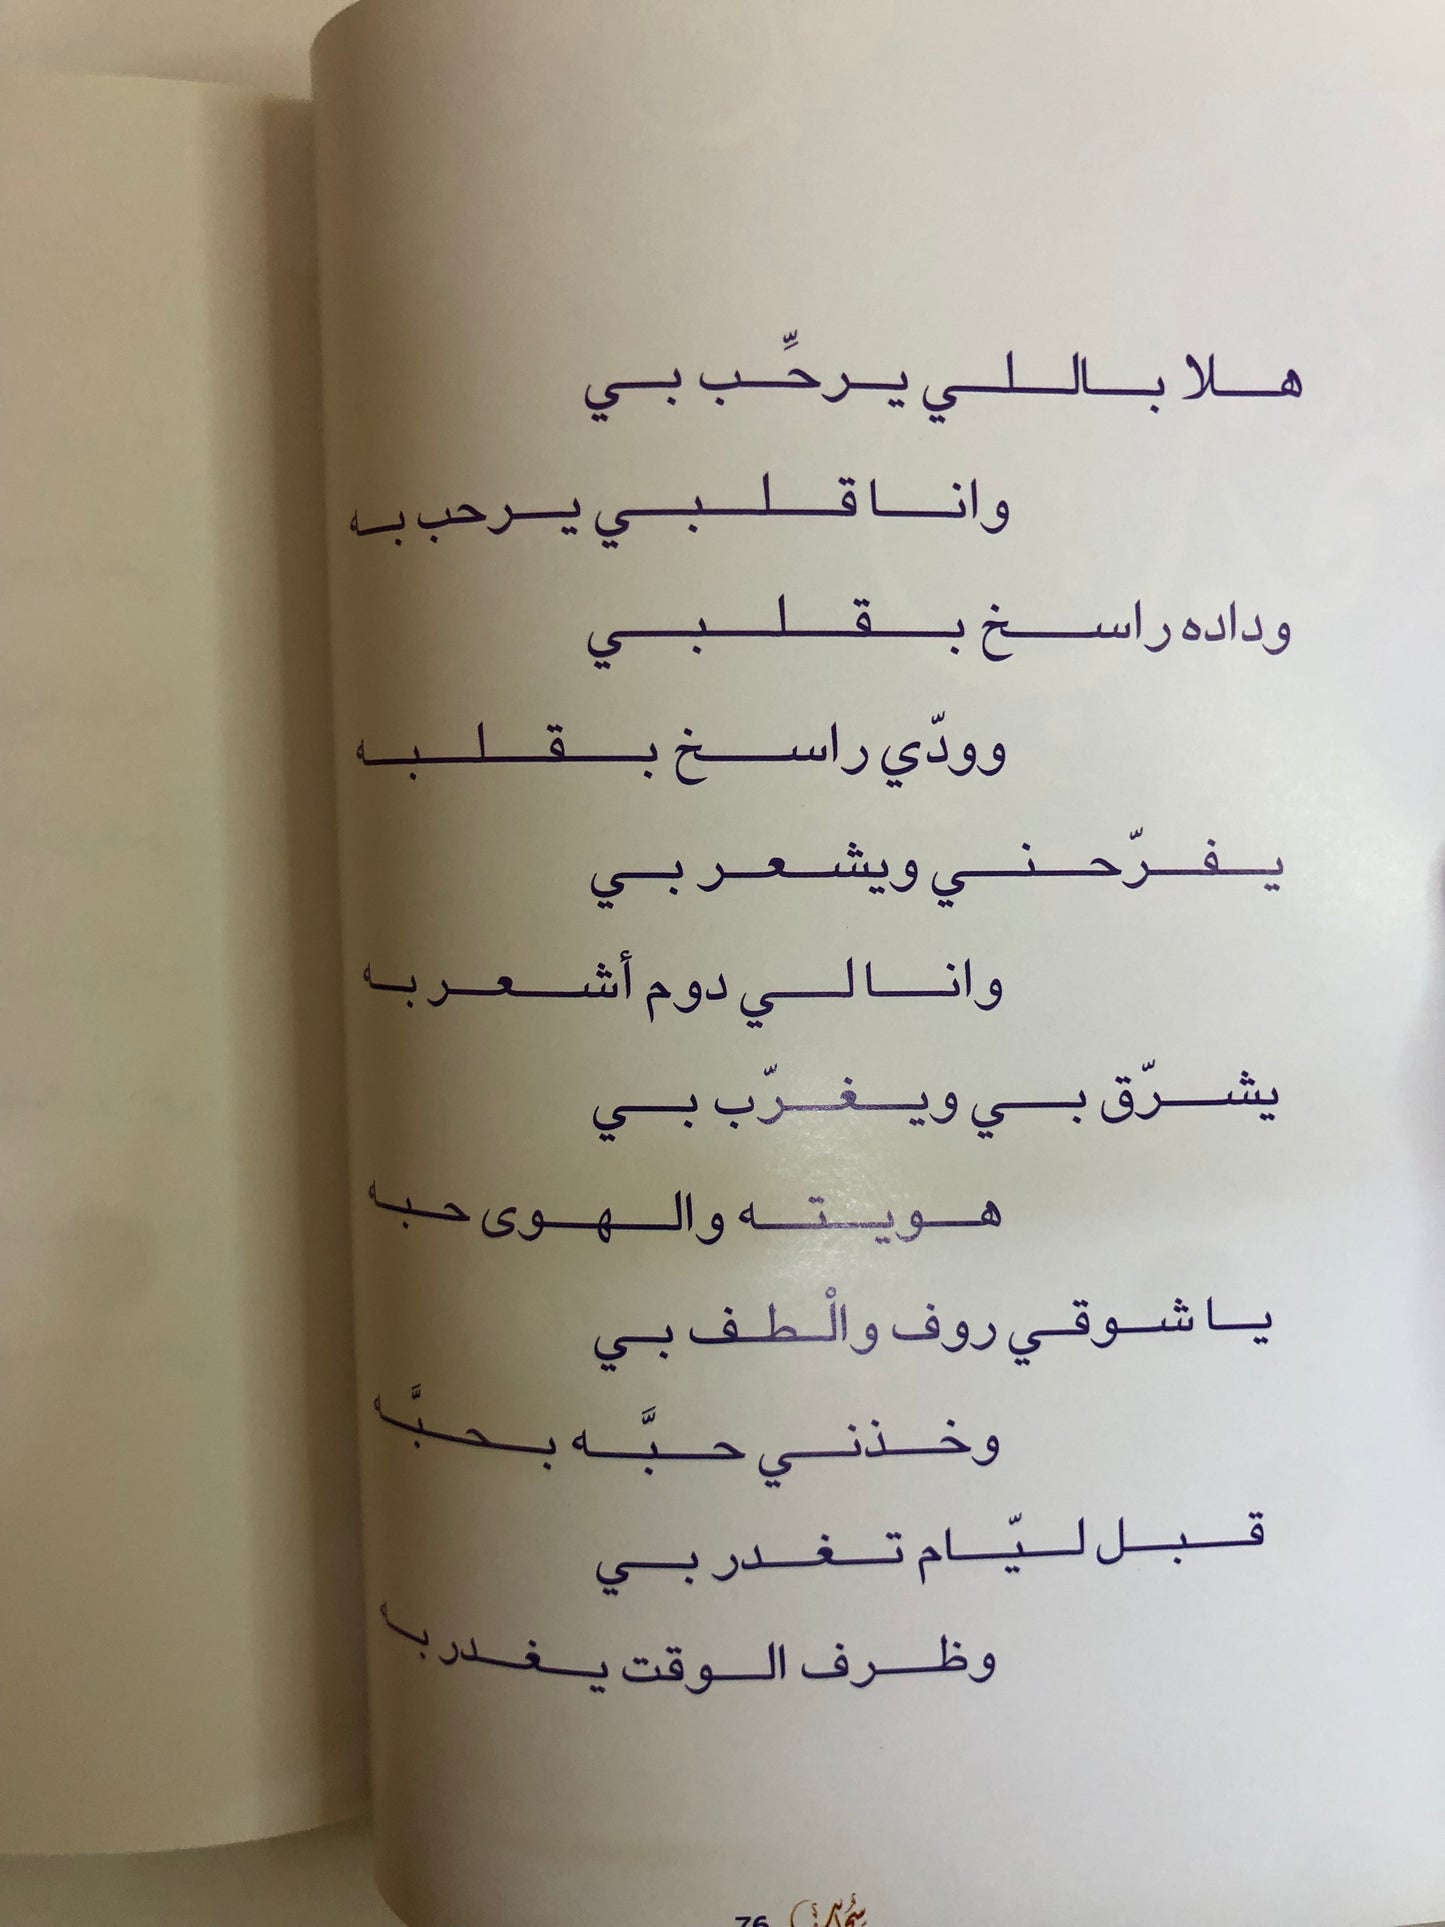 هلا باللي يرحِّب بي
وانا قلبي يرحب به
وداده راسخ بقلبي
وودّي راسخ بقلبه
يفرّحني ويشعر بي
وانا لي دوم أشعر به
يشرّق بي ويغرّب بي
هويته والهوى حبه
يا شوقي روف والْطف بي
وخذني حبَّه بحبَّه
قبل ليّام تغدر بي
وظرف الوقت يغدر به
76